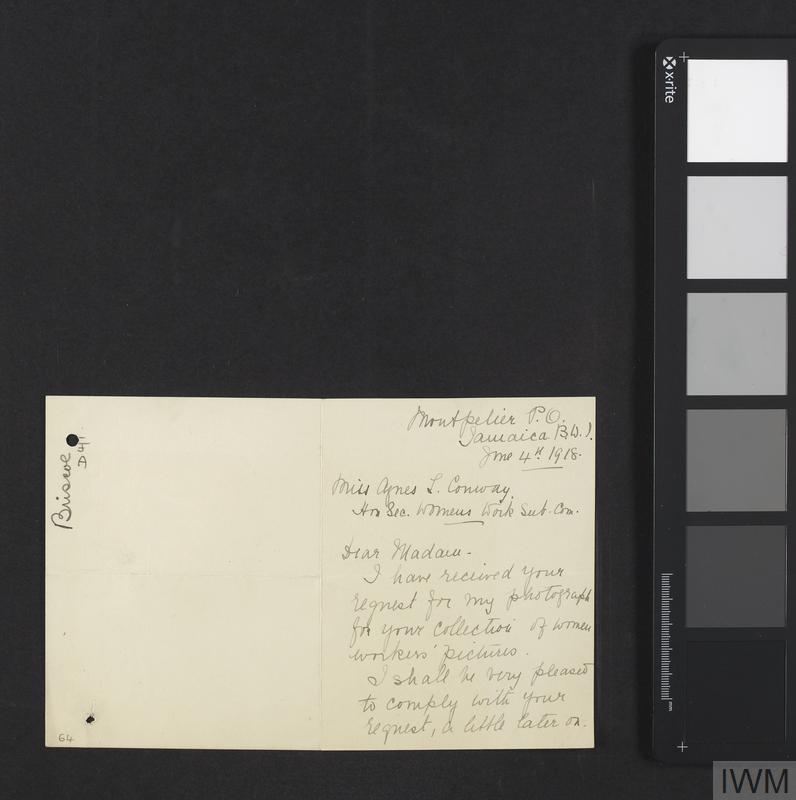 Briscoe
D 4/1.
64
Montpelier P.O.
Jamaica B.W.I.
June 4th 1918.
Miss Agnes L. Conway.
Hon Sec. Womens Work Sub. Com.
Dear Madam -
I have received your
request for my photograph
for your collection of women
workers' pictures.
I shall be very pleased
to comply with your
request, a little later on.
x-rite
mm
IWM